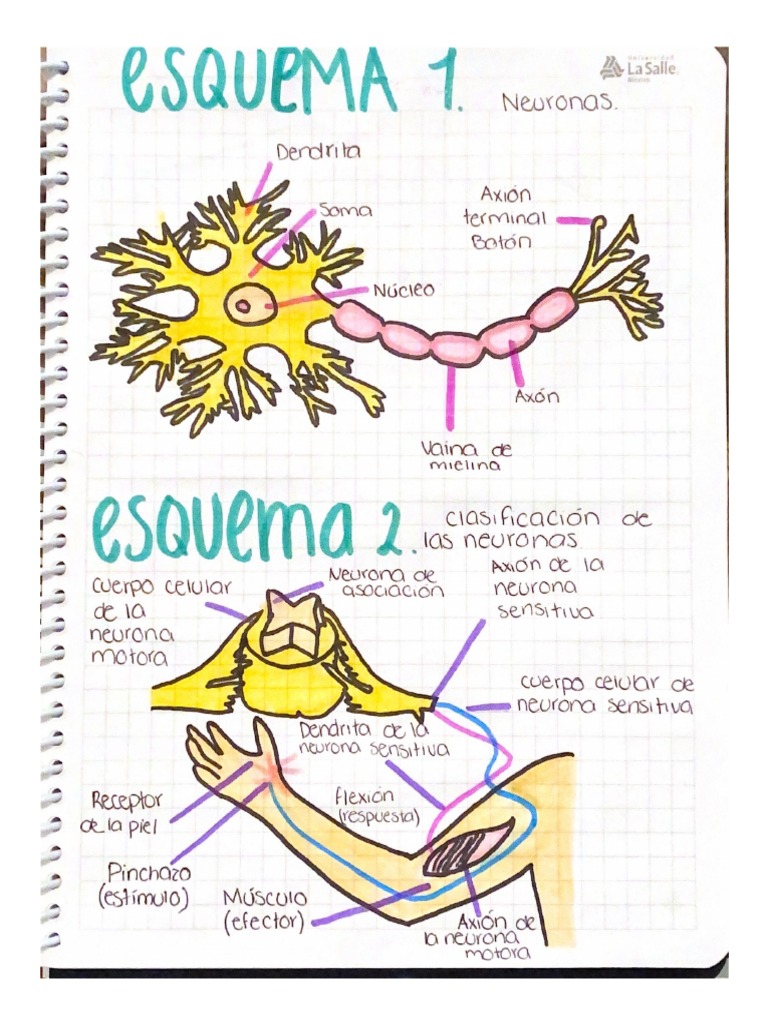 ESQUEMA 1.
Universidad
La Salle
Neuronas.
Dendrita
Soma
Núcleo
Axión
terminal
Botón
Axón
Vaina de
mielina
esquema 2.
clasificación de
las neuronas.
cuerpo celular
de la
neurona
motora
Neurona de
asociación
Axión de la
neurona
sensitiva
cuerpo celular de
neurona sensitiva
Dendrita de la
neurona sensitiva
Receptor
de la piel
flexión
(respuesta)
Pinchazo
(estímulo)
Músculo
(efector)
Axión de
la neurona
motora